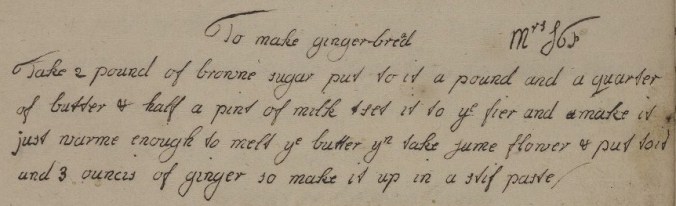 To make ginger-bred Mrs Fox
Take 2 pound of browne sugar put to it a pound and a quarter
of butter & half a pint of milk & set it to ye fier and make it
just warme enough to melt ye butter yn take sume flower & put to it
and 3 ouncis of ginger so make it up in a stif paste